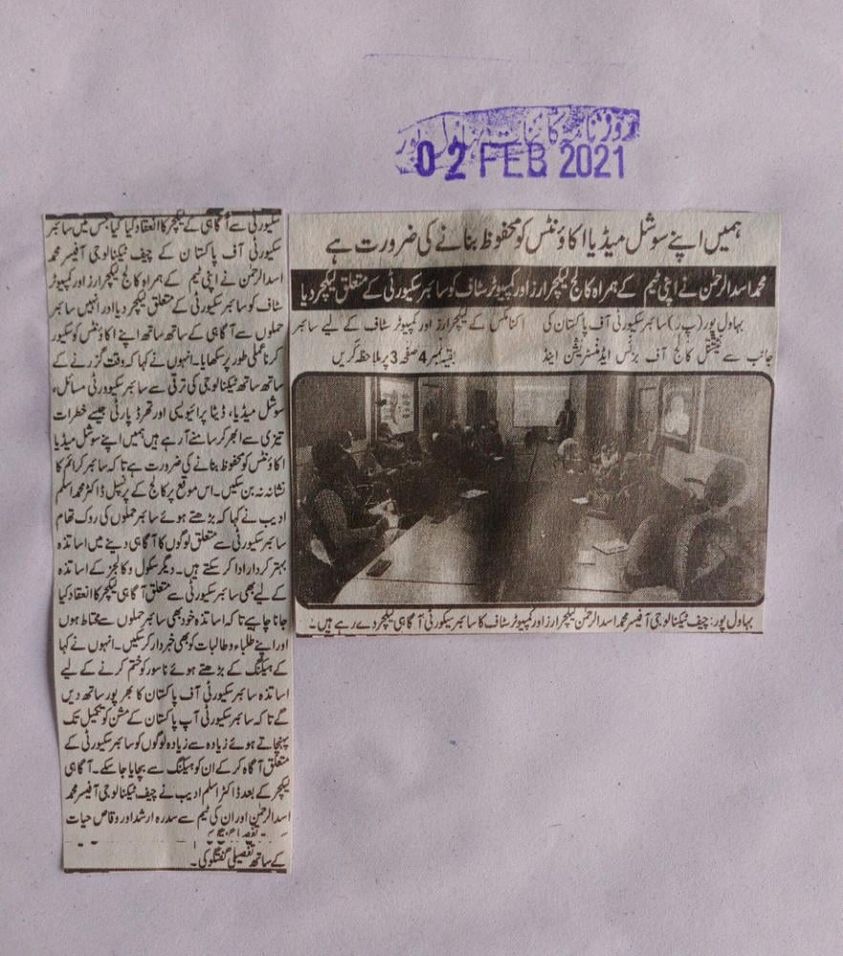 روزنامہ کائنات بہاولپور
02 FEB 2021
ہمیں اپنے سوشل میڈیا اکاؤنٹس کو محفوظ بنانے کی ضرورت ہے
محمد اسد الرحمٰن نے اپنی ٹیم کے ہمراہ کالج لیکچرارز اور کمپیوٹر سٹاف کو سائبر سکیورٹی کے متعلق لیکچر دیا
بہاول پور (پ ر) سائبر سکیورٹی آف پاکستان کی
جانب سے نیشنل کالج آف بزنس ایڈمنسٹریشن اینڈ
اکنامکس کے لیکچرارز اور کمپیوٹر سٹاف کے لیے سائبر
بقیہ نمبر 4 صفحہ 3 پر ملاحظہ کریں
بہاول پور: چیف ٹیکنالوجی آفیسر محمد اسد الرحمٰن لیکچرارز اور کمپیوٹر سٹاف کا سائبر سیکورٹی آگاہی لیکچر دے رہے ہیں۔
سکیورٹی سے آگاہی کے لیکچر کا انعقاد کیا گیا، جس میں سائبر
سکیورٹی آف پاکستان کے چیف ٹیکنالوجی آفیسر محمد
اسد الرحمٰن نے اپنی ٹیم کے ہمراہ کالج لیکچرارز اور کمپیوٹر
سٹاف کو سائبر سکیورٹی کے متعلق لیکچر دیا اور انہیں سائبر
حملوں سے آگاہی کے ساتھ ساتھ اپنے اکاؤنٹس کو سکیور
کرنا عملی طور پر سکھایا۔ انہوں نے کہا کہ وقت گزرنے کے
ساتھ ساتھ ٹیکنالوجی کی ترقی سے سائبر سکیورٹی مسائل،
سوشل میڈیا، ڈیٹا پرائیویسی اور تھرڈ پارٹی جیسے خطرات
تیزی سے ابھر کر سامنے آ رہے ہیں ہمیں اپنے سوشل میڈیا
اکاؤنٹس کو محفوظ بنانے کی ضرورت ہے تاکہ سائبر کرائم کا
نشانہ نہ بن سکیں۔ اس موقع پر کالج کے پرنسپل ڈاکٹر محمد اسلم
ادیب نے کہا کہ بڑھتے ہوئے سائبر حملوں کی روک تھام
سائبر سکیورٹی سے متعلق لوگوں کا آگاہی دینے میں اساتذہ
بہتر کردار ادا کر سکتے ہیں۔ دیگر سکول و کالجز کے اساتذہ
کے لیے بھی سائبر سکیورٹی سے متعلق آگاہی لیکچر کا انعقاد کیا
جانا چاہیے تاکہ اساتذہ خود بھی سائبر حملوں سے محتاط ہوں
اور اپنے طلباء و طالبات کو بھی خبردار کر سکیں۔ انہوں نے کہا
کے ہیکنگ کے بڑھتے ہوئے ناسور کو ختم کرنے کے لیے
اساتذہ سائبر سکیورٹی آف پاکستان کا بھر پور ساتھ دیں
گے تاکہ سائبر سکیورٹی آپ پاکستان کے مشن کو تکمیل تک
پہنچاتے ہوئے زیادہ سے زیادہ لوگوں کو سائبر سکیورٹی کے
متعلق آگاہ کر کے ان کو ہیکنگ سے بچایا جا سکے۔ آگاہی
لیکچر کے بعد ڈاکٹر اسلم ادیب نے چیف ٹیکنالوجی آفیسر محمد
اسد الرحمٰن اور ان کی ٹیم سے سدرہ ارشد اور وقاص حیات
کے ساتھ تفصیلی گفتگو کی۔